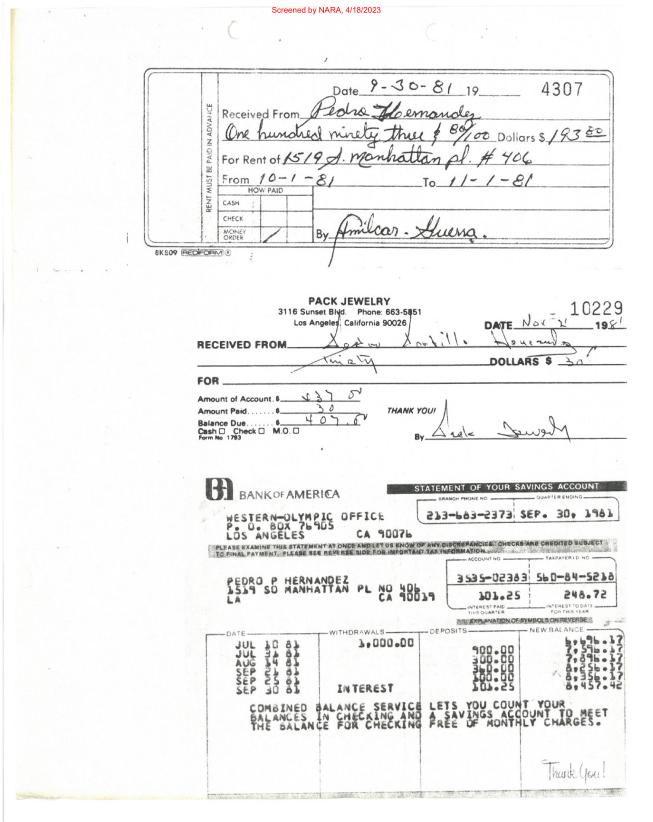 Screened by NARA, 4/18/2023
Date 9-30-81 19 4307
RENT MUST BE PAID IN ADVANCE
Received From Pedro Hernandez
One hundred ninety three & 80/100 Dollars $ 193 80
For Rent of 1519 S. Manhattan pl. # 406
From 10-1-81 To 11-1-81
HOW PAID
CASH
CHECK
MONEY ORDER
By Amilcar Guerra.
8K809 REDIFORM
PACK JEWELRY
3116 Sunset Blvd. Phone: 663-5851
Los Angeles, California 90026
10229
DATE Nov-21 1981
RECEIVED FROM Pedro Portillo Hernandez
Thirty DOLLARS $ 30
FOR
Amount of Account. $ 437
Amount Paid....... $ 30
Balance Due....... $ 407
THANK YOU!
Cash Check M.O.
Form No 1793
By Pack Jewelry
BANK OF AMERICA
STATEMENT OF YOUR SAVINGS ACCOUNT
BRANCH PHONE NO QUARTER ENDING
WESTERN-OLYMPIC OFFICE 213-683-2373 SEP. 30, 1981
P. O. BOX 76905
LOS ANGELES CA 90076
PLEASE EXAMINE THIS STATEMENT AT ONCE AND LET US KNOW OF ANY DISCREPANCIES. CHECKS ARE CREDITED SUBJECT
TO FINAL PAYMENT. PLEASE SEE REVERSE SIDE FOR IMPORTANT TAX INFORMATION.
ACCOUNT NO TAXPAYER I.D. NO
PEDRO P HERNANDEZ 3535-02383 560-84-5218
1519 SO MANHATTAN PL NO 406
LA CA 90019 101.25 248.72
INTEREST PAID THIS QUARTER INTEREST TO DATE FOR THIS YEAR
EXPLANATION OF SYMBOLS ON REVERSE
DATE WITHDRAWALS DEPOSITS NEW BALANCE
JUL 10 81 1,000.00 6,696.17
JUL 31 81 900.00 7,596.17
AUG 14 81 300.00 7,896.17
SEP 21 81 360.00 8,256.17
SEP 25 81 100.00 8,356.17
SEP 30 81 INTEREST 101.25 8,457.42
COMBINED BALANCE SERVICE LETS YOU COUNT YOUR
BALANCES IN CHECKING AND A SAVINGS ACCOUNT TO MEET
THE BALANCE FOR CHECKING FREE OF MONTHLY CHARGES.
Thank You!